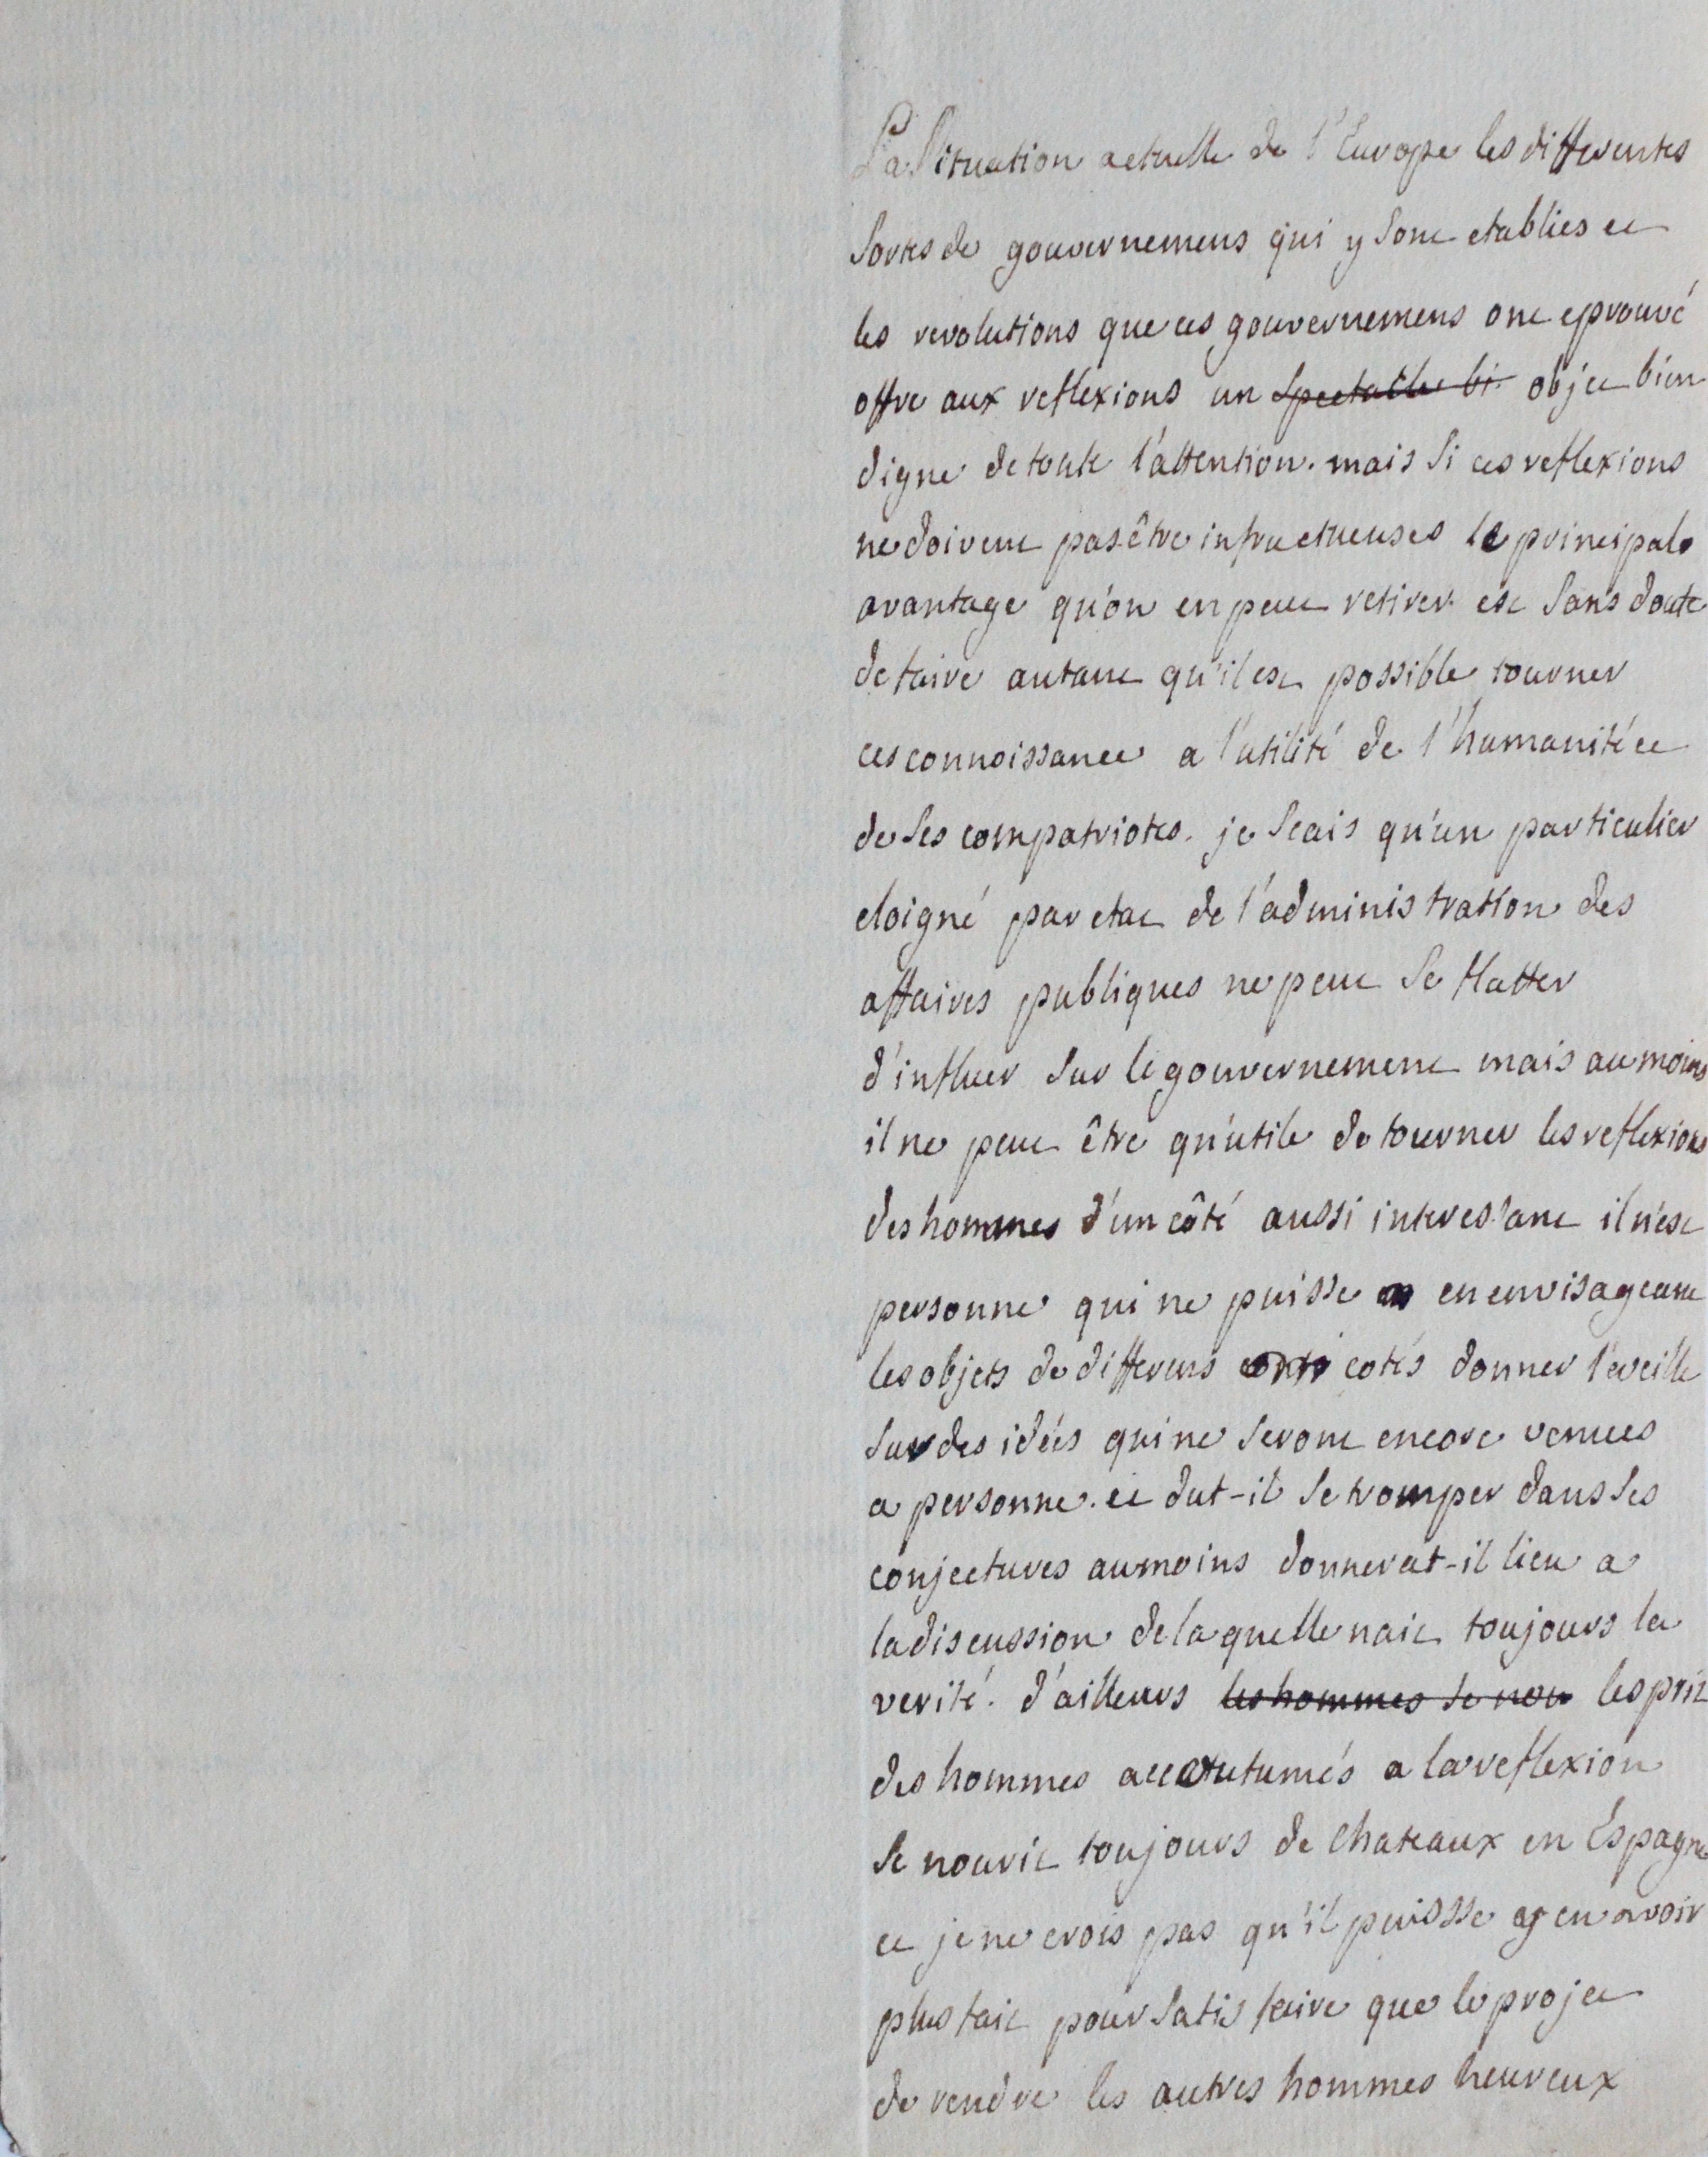 La Situation actuelle de l'Europe les differentes
Sortes de gouvernemens qui y Sont etablies et
les revolutions que ces gouvernemens ont eprouvé
offre aux reflexions un Spectacle bi objet bien
digne de toute l'attention. mais Si ces reflexions
ne doivent pas être infructueuses le principal
avantage qu'on en peut retirer est Sans doute
de faire autant qu'il est possible tourner
ces connoissance a l'utilité de l'humanité et
de Ses compatriotes. je Scais qu'un particulier
eloigné par etat de l'administration des
affaires publiques ne peut Se flatter
d'influer Sur le gouvernement mais au moins
il ne peut être qu'utile de tourner les reflexions
des hommes d'un côté aussi interessant il n'est
personne qui ne puisse en envisageant
les objets de differens cotés donner l'eveille
Sur des idées qui ne Seront encore venues
a personne. et dut-il Se tromper dans Ses
conjectures au moins donnerat-il lieu a
la discussion de laquelle nait toujours la
verité. d'ailleurs les hommes Se nou lesprit
des hommes accoutumés a la reflexion
Se nourit toujours de chateaux en Éspagne
et je ne crois pas qu'il puisse y en avoir
plus fait pour Satisfaire que le projet
de rendre les autres hommes heureux